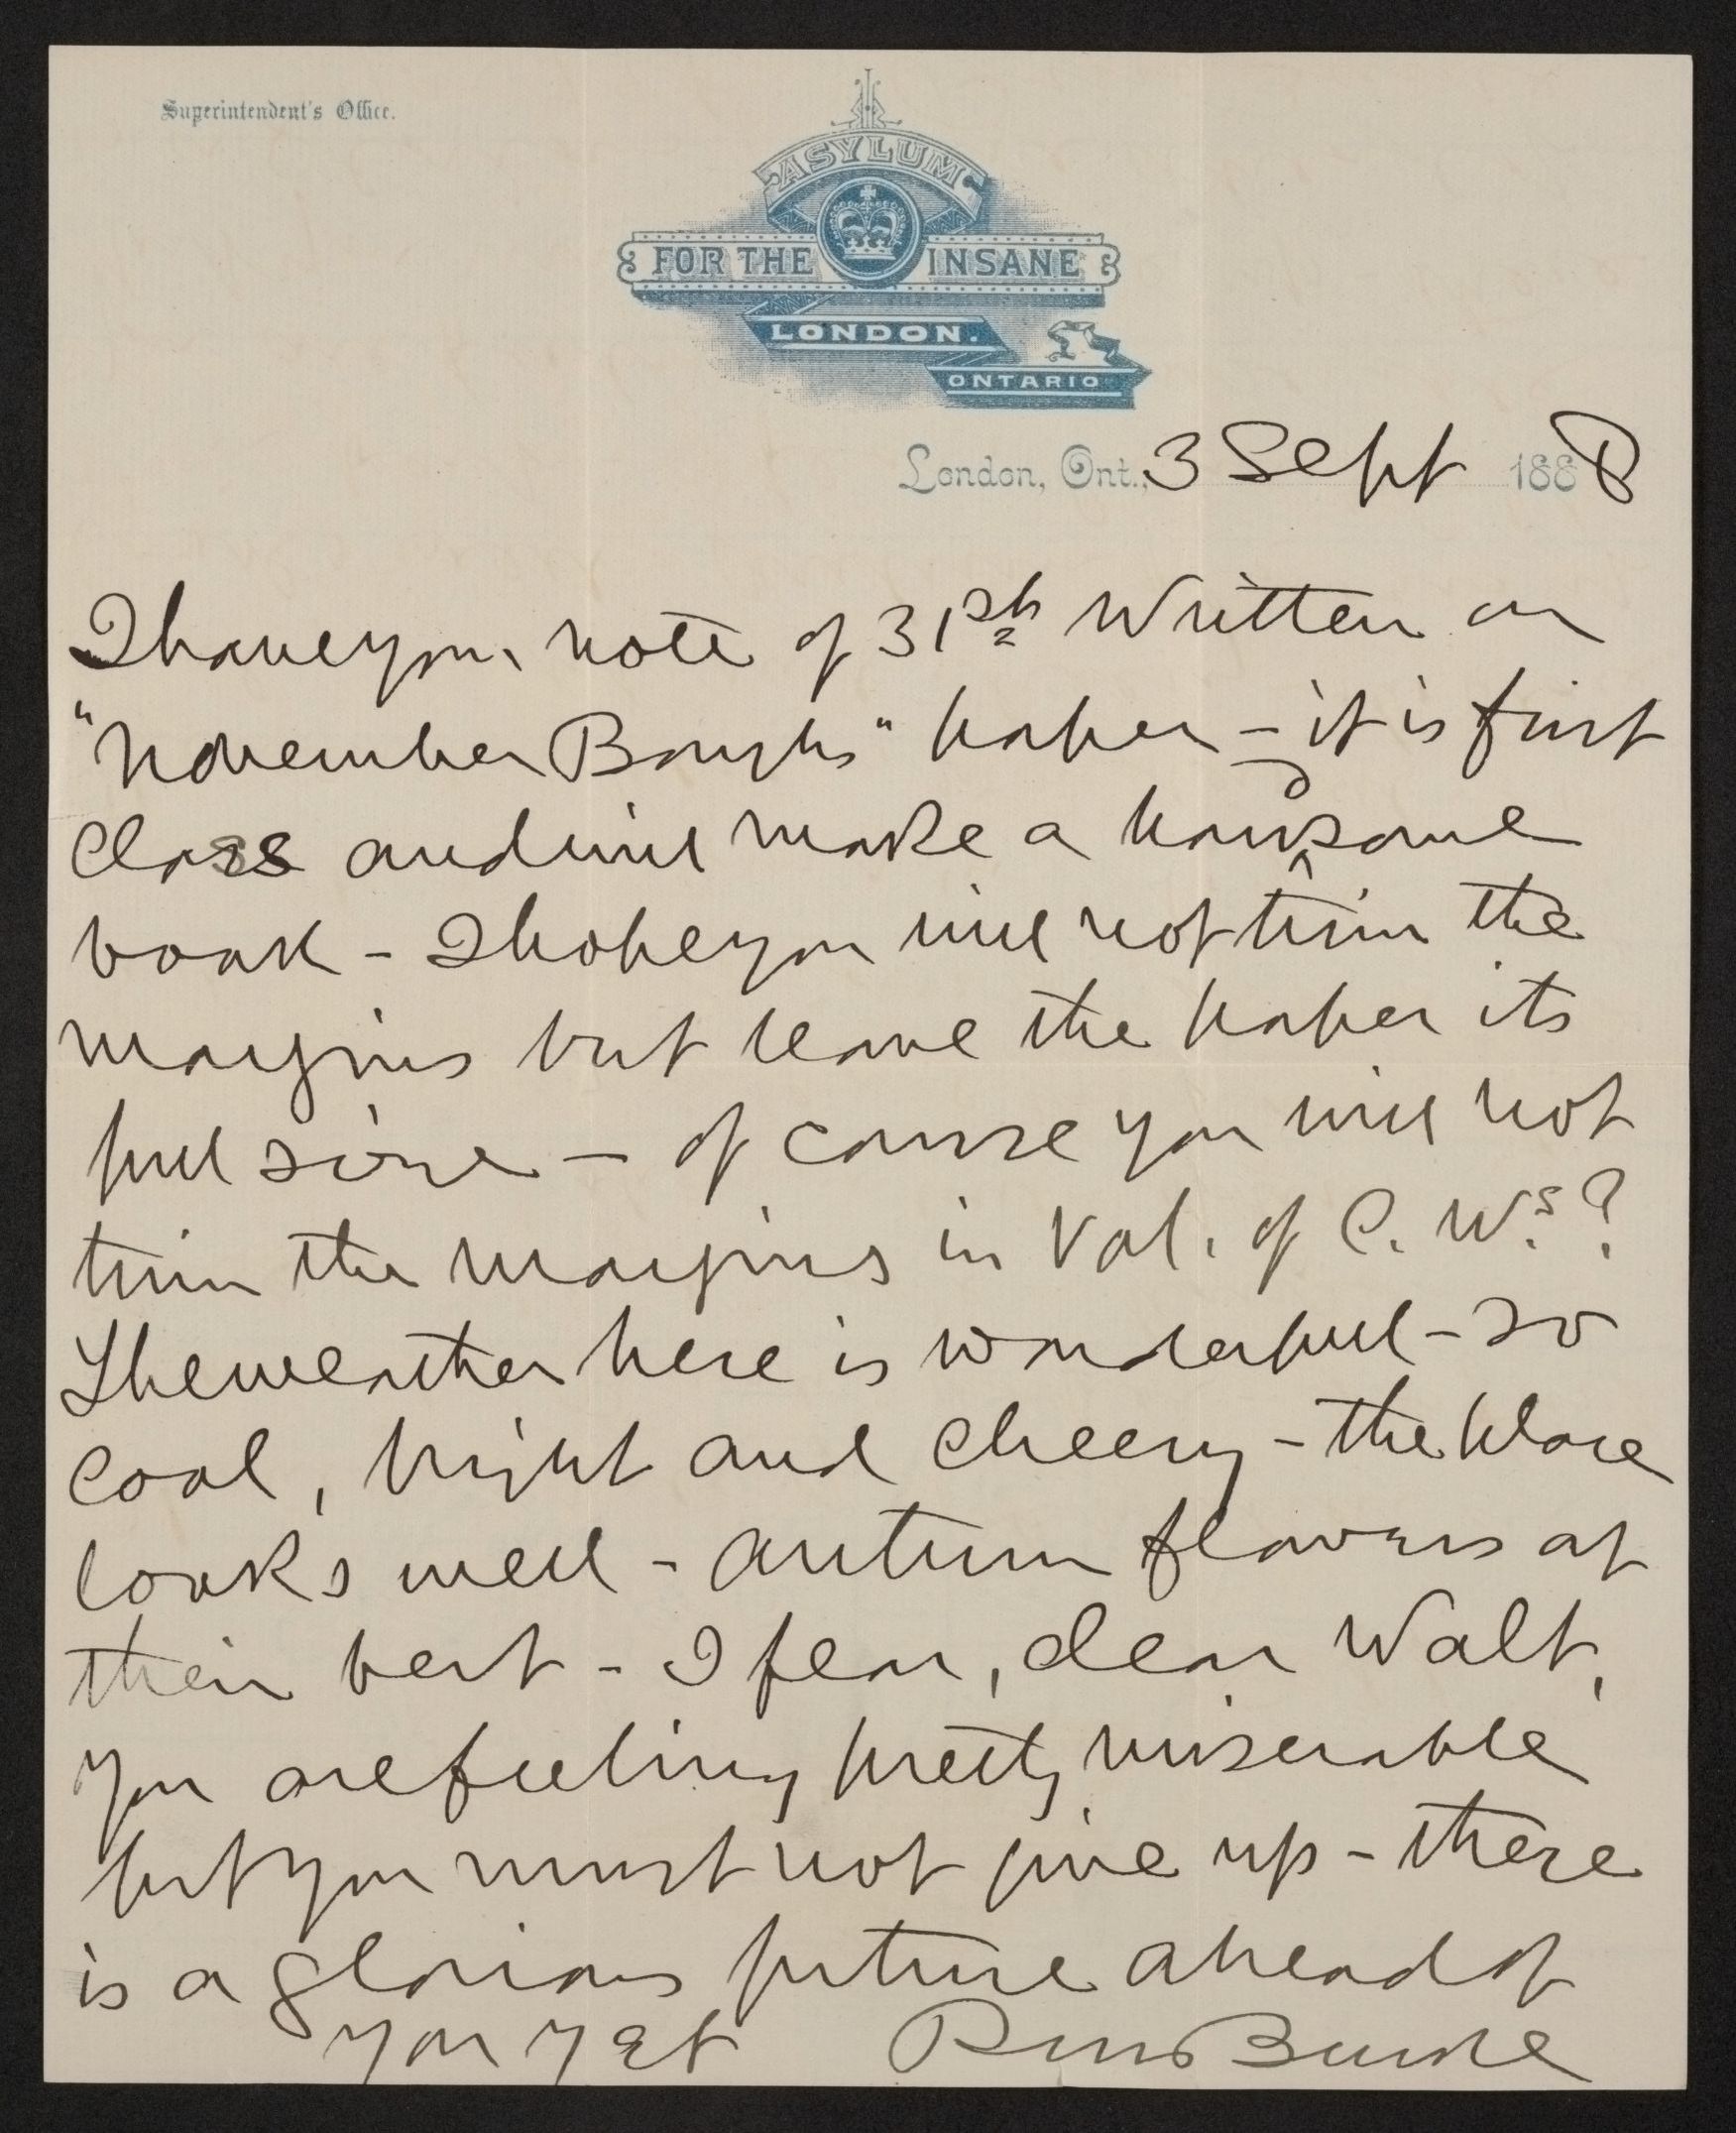 Superintendent's Office.
ASYLUM
FOR THE INSANE
LONDON.
ONTARIO
London, Ont., 3 Sept 1888
I have your note of 31st written on
"November Boughs" paper – it is first
class and will make a handsome
book – I hope you will not trim the
margins but leave the paper its
full size – of course you will not
trim the margins in Vol. of C. W.s?
The weather here is wonderful – so
cool, bright and cheery – the place
looks well – autumn flowers at
their best – I fear, dear Walt,
you are feeling pretty miserable
but you must not give up – there
is a glorious future ahead of
you yet RM Bucke